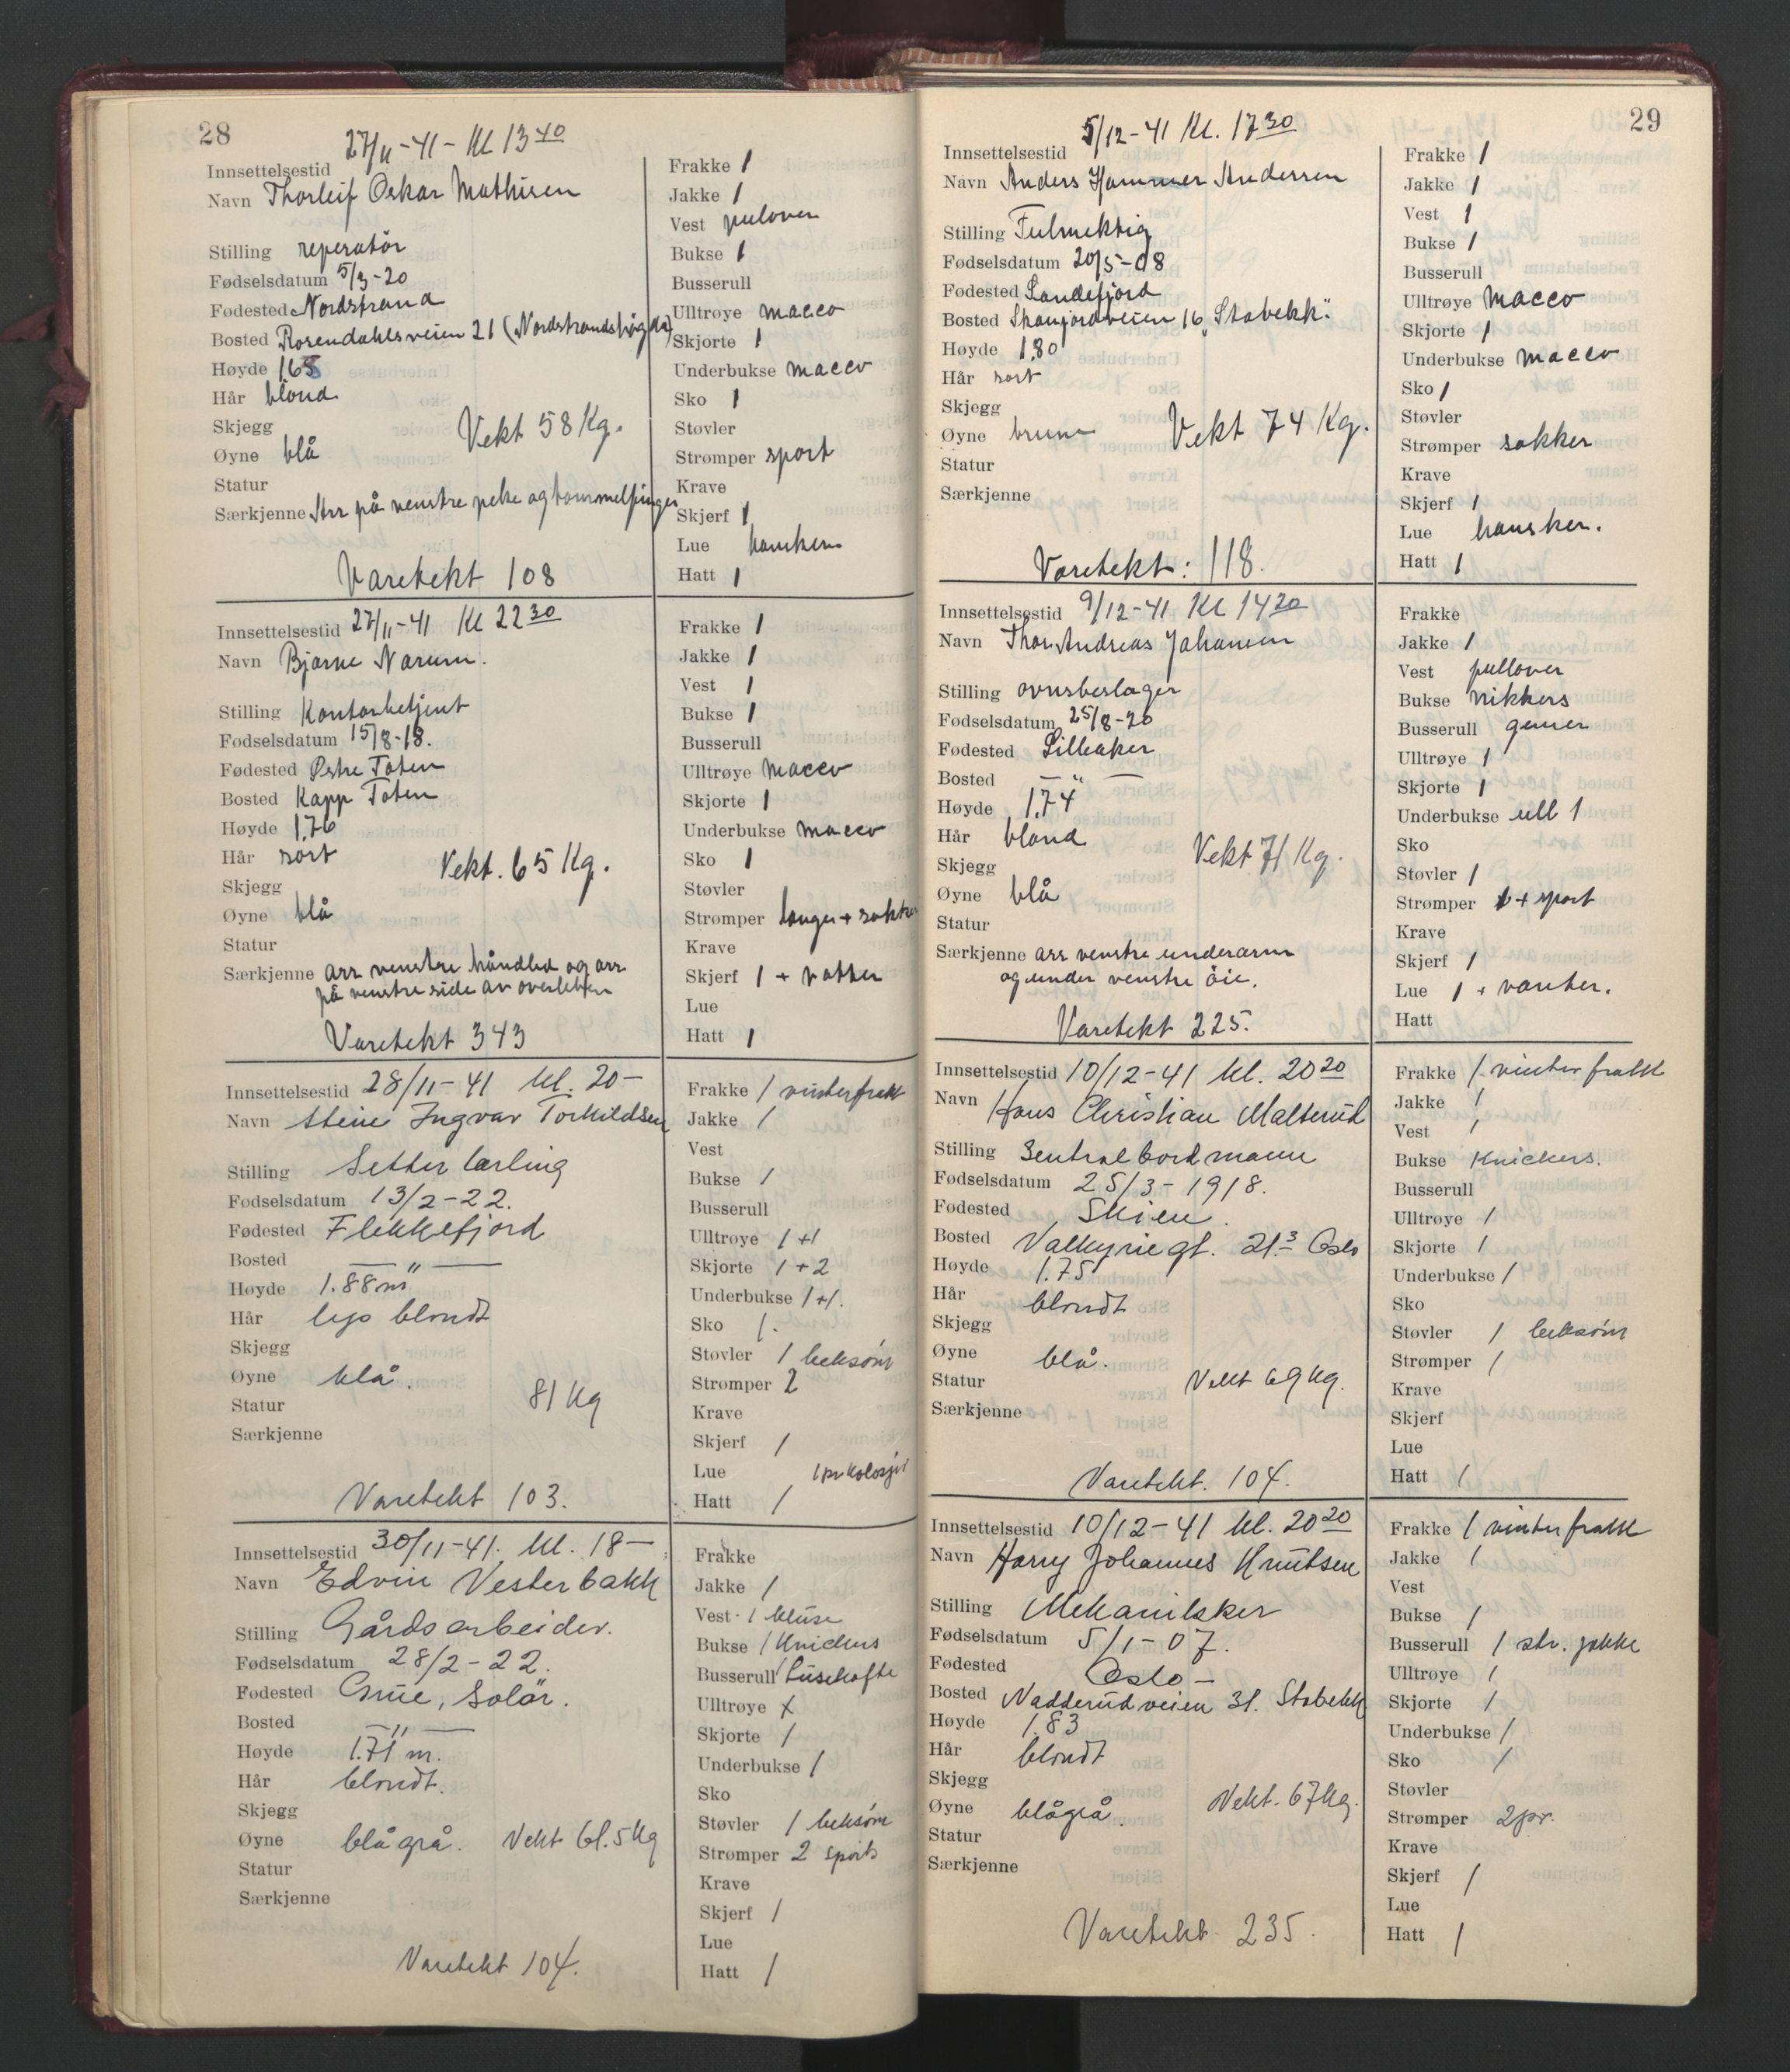 28
Innsettelsestid 27/11-41 - Kl 13 40
Navn Thorleif Oskar Mathisen
Stilling reperatör
Fødselsdatum 5/3-20
Fødested Nordstrand
Bosted Rosendahlsveien 21 (Nordstrandshøgda)
Høyde 165
Hår blond
Skjegg
Øyne blå Vekt 58 Kg.
Statur
Særkjenne Arr på venstre peke og tommelfinger
Varetekt 108
Frakke 1
Jakke 1
Vest pulover
Bukse 1
Busserull
Ulltrøye macco
Skjorte 1
Underbukse macco
Sko 1
Støvler
Strømper sport
Krave
Skjerf 1
Lue hansker
Hatt 1
Innsettelsestid 27/11-41 Kl 22 30
Navn Bjarne Narum.
Stilling Kontorbetjent
Fødselsdatum 15/8-18.
Fødested Østre Toten
Bosted Kapp Toten
Høyde 1.76
Hår sort
Skjegg Vekt. 65 Kg.
Øyne blå
Statur
Særkjenne arr venstre håndled og arr
på venstre side av overleben
Varetekt 343
Frakke 1
Jakke 1
Vest 1
Bukse 1
Busserull
Ulltrøye macco
Skjorte 1
Underbukse macco
Sko 1
Støvler
Strømper lange + sokker
Krave
Skjerf 1 + votter
Lue
Hatt 1
Innsettelsestid 28/11-41 kl. 20-
Navn Steine Ingvar Torkildsen
Stilling Setterlærling
Fødselsdatum 13/2-22.
Fødested Flekkefjord
Bosted — " —
Høyde 1.88 m
Hår lys blondt
Skjegg
Øyne blå.
Statur 81 kg
Særkjenne
Varetekt 103.
Frakke 1 vinterfrakk
Jakke 1
Vest
Bukse 1
Busserull
Ulltrøye 1+1
Skjorte 1+2
Underbukse 1+1.
Sko 1.
Støvler 1 beksøm
Strømper 2
Krave
Skjerf 1
Lue 1 pr kalosjer
Hatt 1
Innsettelsestid 30/11-41. kl. 18-
Navn Edvin Vesterbakk
Stilling Gårdsarbeider.
Fødselsdatum 28/2-22.
Fødested Grue, Solör.
Bosted — " —
Høyde 1.71 m.
Hår blondt.
Skjegg
Øyne blågrå. Vekt 61.5 kg
Statur
Særkjenne
Varetekt 104.
Frakke
Jakke 1
Vest 1 bluse
Bukse 1 Knickers
Busserull 1 Lusekofte
Ulltrøye x
Skjorte 1
Underbukse 1
Sko
Støvler 1 beksøm
Strømper 2 sports
Krave
Skjerf 1
Lue
Hatt 1
29
Innsettelsestid 5/12-41 Kl. 17 30
Navn Anders Hammer Anderssen
Stilling Fulmektig
Fødselsdatum 20/5-08
Fødested Sandefjord
Bosted 16 "Stabekk".
Høyde 1.80
Hår sort
Skjegg
Øyne brune Vekt 74 Kg.
Statur
Særkjenne
Varetekt: 118.
Frakke 1
Jakke 1
Vest 1
Bukse 1
Busserull
Ulltrøye macco
Skjorte 1
Underbukse macco
Sko 1
Støvler
Strømper sokker
Krave
Skjerf 1
Lue hansker.
Hatt 1
Innsettelsestid 9/12-41 Kl 14 20
Navn Thor Andreas Johansen
Stilling ovnsbeslager
Fødselsdatum 25/8-20
Fødested Lilleaker
Bosted — " —
Høyde 1.74
Hår blond
Skjegg Vekt 71 Kg.
Øyne blå
Statur
Særkjenne arr venstre underarm
og under venstre öie.
Varetekt 225.
Frakke
Jakke 1
Vest pullover
Bukse nikkers
Busserull genser
Ulltrøye 1
Skjorte 1
Underbukse ull 1
Sko
Støvler 1
Strømper 1 + sport
Krave
Skjerf 1
Lue 1 + vanter.
Hatt
Innsettelsestid 10/12-41 kl. 20 20
Navn Hans Christian Malterud
Stilling Sentralbordmann
Fødselsdatum 25/3-1918.
Fødested Skien.
Bosted Valkyriegt. 21.3 Oslo
Høyde 1.75
Hår blondt
Skjegg
Øyne blå.
Statur Vekt 69 kg.
Særkjenne
Varetekt. 104.
Frakke 1 vinterfrakk
Jakke 1
Vest 1
Bukse Knickers.
Busserull
Ulltrøye 1
Skjorte 1
Underbukse 1
Sko
Støvler 1 beksøm
Strømper 1
Krave
Skjerf
Lue
Hatt 1
Innsettelsestid 10/12-41 kl. 20 20
Navn Harry Johannes Knutsen
Stilling Mekaniker
Fødselsdatum 5/1-07.
Fødested Oslo -
Bosted Nadderudveien 31. Stabekk
Høyde 1.83
Hår blondt
Skjegg
Øyne blågrå. Vekt. 67 kg.
Statur
Særkjenne
Varetekt 235.
Frakke 1 vinterfrakk
Jakke 1
Vest
Bukse 1
Busserull 1 str. jakke
Ulltrøye 1
Skjorte 1
Underbukse 1
Sko 1
Støvler
Strømper 2 pr.
Krave
Skjerf 1
Lue
Hatt 1